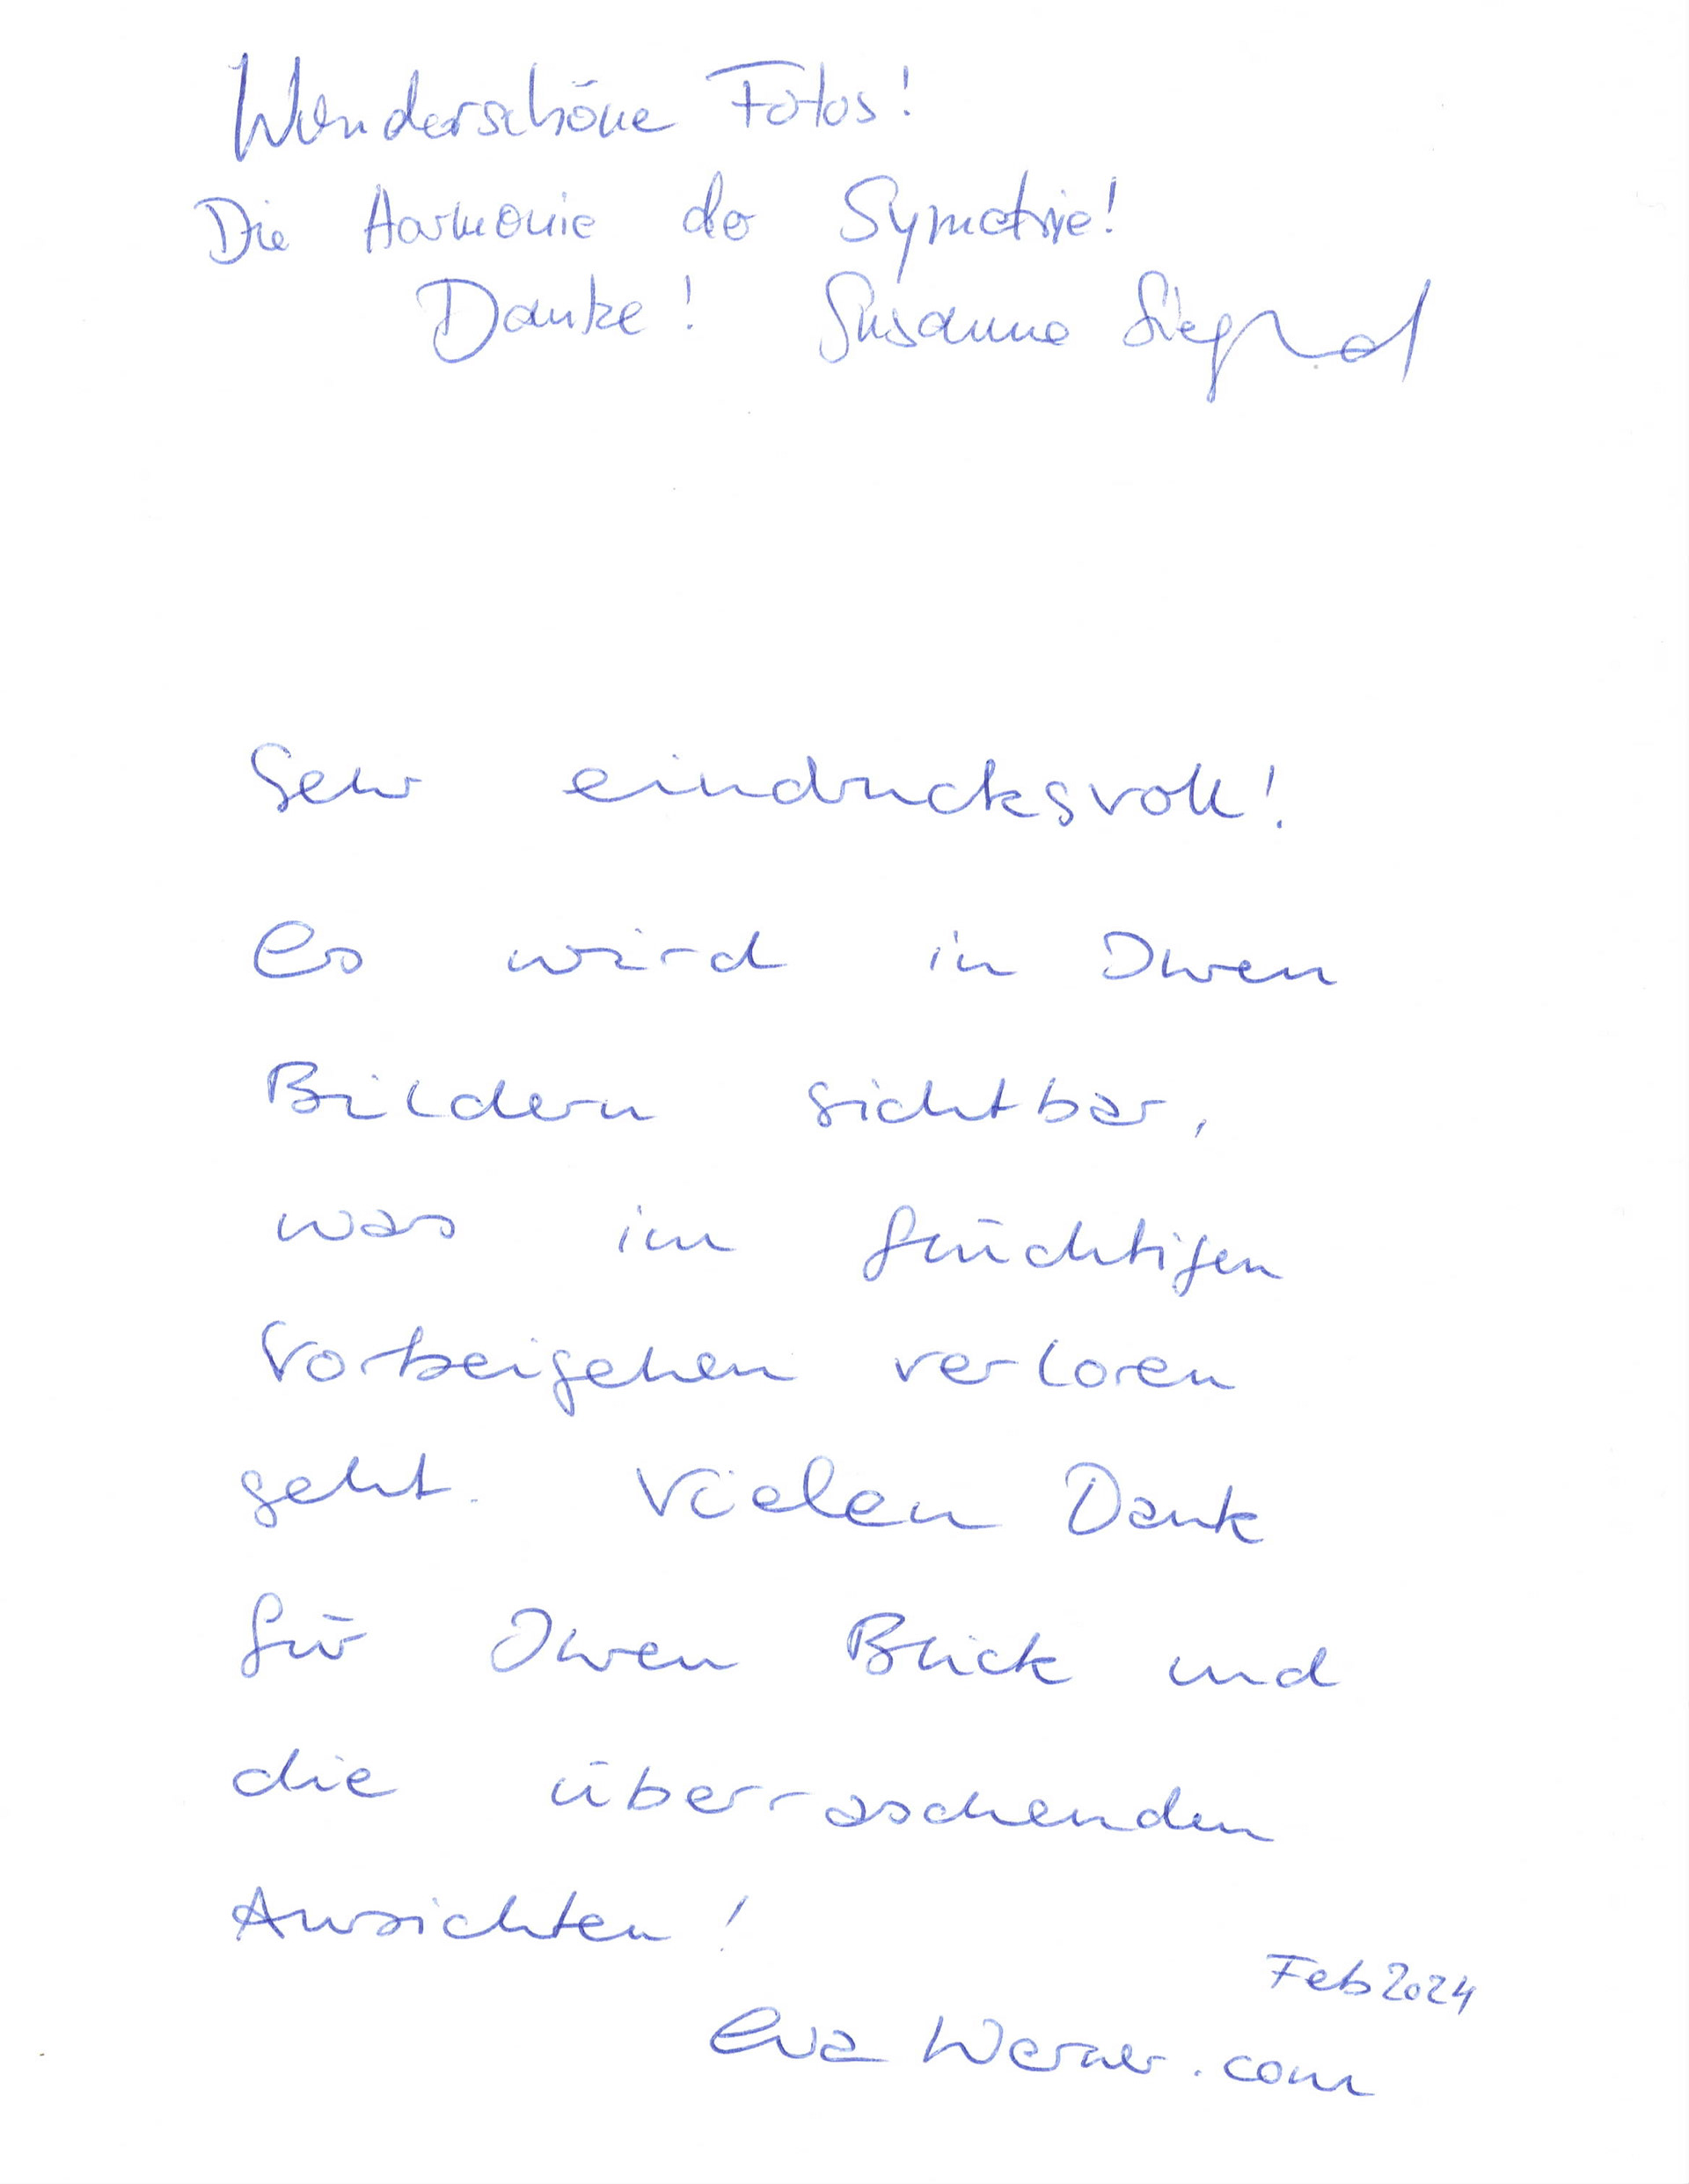 Wunderschöne Fotos!
Die Harmonie der Symetrie!
Danke! Susanne
Sehr eindrucksvoll!
Es wird in Ihren
Bildern sichtbar,
was im flüchtigen
Vorbeigehen verloren
geht. Vielen Dank
für Ihren Blick und
die überraschenden
Ansichten!
Feb 2024
Eva Werner.com